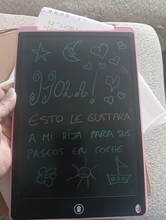 ¡HOLA!
ESTO LE GUSTARA
A MI HIJA PARA SUS
PASEOS EN COCHE